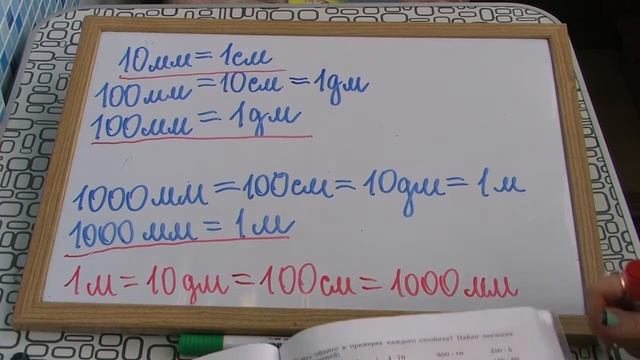 10мм = 1см
100мм = 10см = 1дм
100мм = 1дм
1000мм = 100см = 10дм = 1м
1000мм = 1м
1м = 10дм = 100см = 1000мм